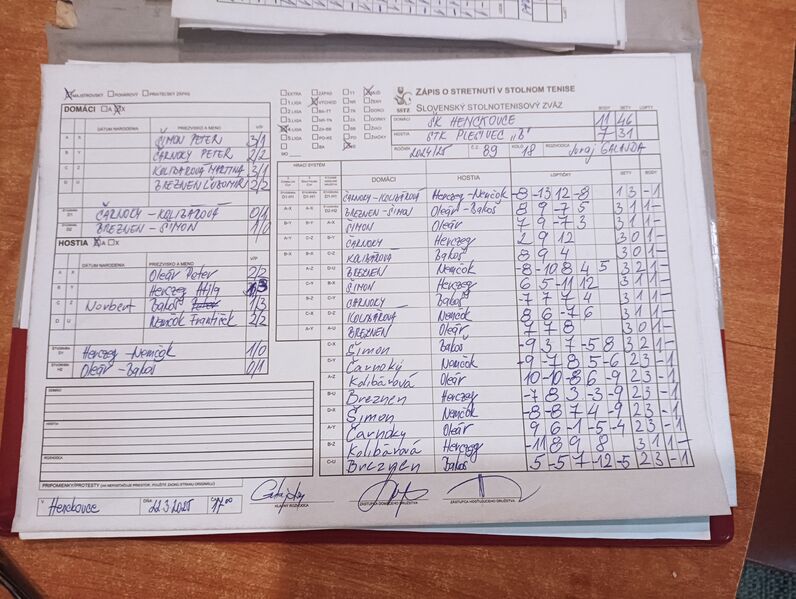 MAJSTROVSKÝ POHÁROVÝ PRIATEĽSKÝ ZÁPAS
DOMÁCI A X
DÁTUM NARODENIA PRIEZVISKO A MENO V/P
A X ŠIMON PETER 3/1
B Y ČARNOKY PETER 2/2
C Z KOLIBÁROVÁ MARTINA 3/1
D U BREZNEN ĽUBOMÍR 2/2
ŠTVORHRA D1 ČARNOKY - KOLIBÁROVÁ 0/1
ŠTVORHRA D2 BREZNEN - ŠIMON 1/0
HOSTIA A X
DÁTUM NARODENIA PRIEZVISKO A MENO V/P
A X Oleár Peter 2/2
B Y Herczeg Atila 1/3
C Z Norbert Bakoš 1/3
D U Nemčok František 2/2
ŠTVORHRA Herczeg - Nemčok 1/0
ŠTVORHRA H2 Oleár - Bakoš 0/1
DOMÁCI
HOSTIA
ROZHODCA
PRIPOMIENKY/PROTESTY
V Henckovce DŇA 22.3.2025 17:00
HLAVNÝ ROZHODCA ZÁSTUPCA DOMÁCEHO DRUŽSTVA ZÁSTUPCA HOSŤUJÚCEHO DRUŽSTVA
EXTRA ZÁPAD MUŽI
1 LIGA VÝCHOD ŽENY
2 LIGA
3 LIGA
4 LIGA
5 LIGA
SSTZ
ZÁPIS O STRETNUTÍ V STOLNOM TENISE
SLOVENSKÝ STOLNOTENISOVÝ ZVÄZ
BODY SETY LOPTY
DOMÁCI ŠK HENCKOVCE 11 46
HOSTIA STK PLEŠIVEC „B" 7 31
ROČNÍK 2024/25 Č.Z. 89 KOLO 18 ROZHODCA Juraj GALAJDA
HRACÍ SYSTÉM
DOMÁCI HOSTIA LOPTIČKY SETY BODY
ČARNOKY - KOLIBÁROVÁ Herczeg - Nemčok -8 -13 12 -8 1 3 - 1
BREZNEN - ŠIMON Oleár - Bakoš 8 9 -7 5 3 1 1 -
ŠIMON Oleár 7 9 -7 3 3 1 1 -
ČARNOKY Herczeg 2 9 12 3 0 1 -
KOLIBÁROVÁ Bakoš 8 9 4 3 0 1 -
BREZNEN Nemčok -8 -10 8 4 5 3 2 1 -
ŠIMON Herczeg 6 5 -11 12 3 1 1 -
ČARNOKY Bakoš -7 7 7 4 3 1 1 -
KOLIBÁROVÁ Nemčok 8 6 -7 6 3 1 1 -
BREZNEN Oleár 7 7 8 3 0 1 -
Šimon Bakoš -9 3 7 -5 8 3 2 1 -
Čarnoký Nemčok -9 -7 8 5 -6 2 3 - 1
Kolibárová Oleár 10 -10 8 6 -9 2 3 - 1
Breznen Herczeg -7 8 3 -3 -9 2 3 - 1
Šimon Nemčok -8 -8 7 4 -9 2 3 - 1
Čarnoky Oleár 9 6 -1 -5 -4 2 3 - 1
Kolibárová Herczeg -11 8 9 8 3 1 1 -
Breznen Bakoš 5 -5 7 -12 -5 2 3 - 1